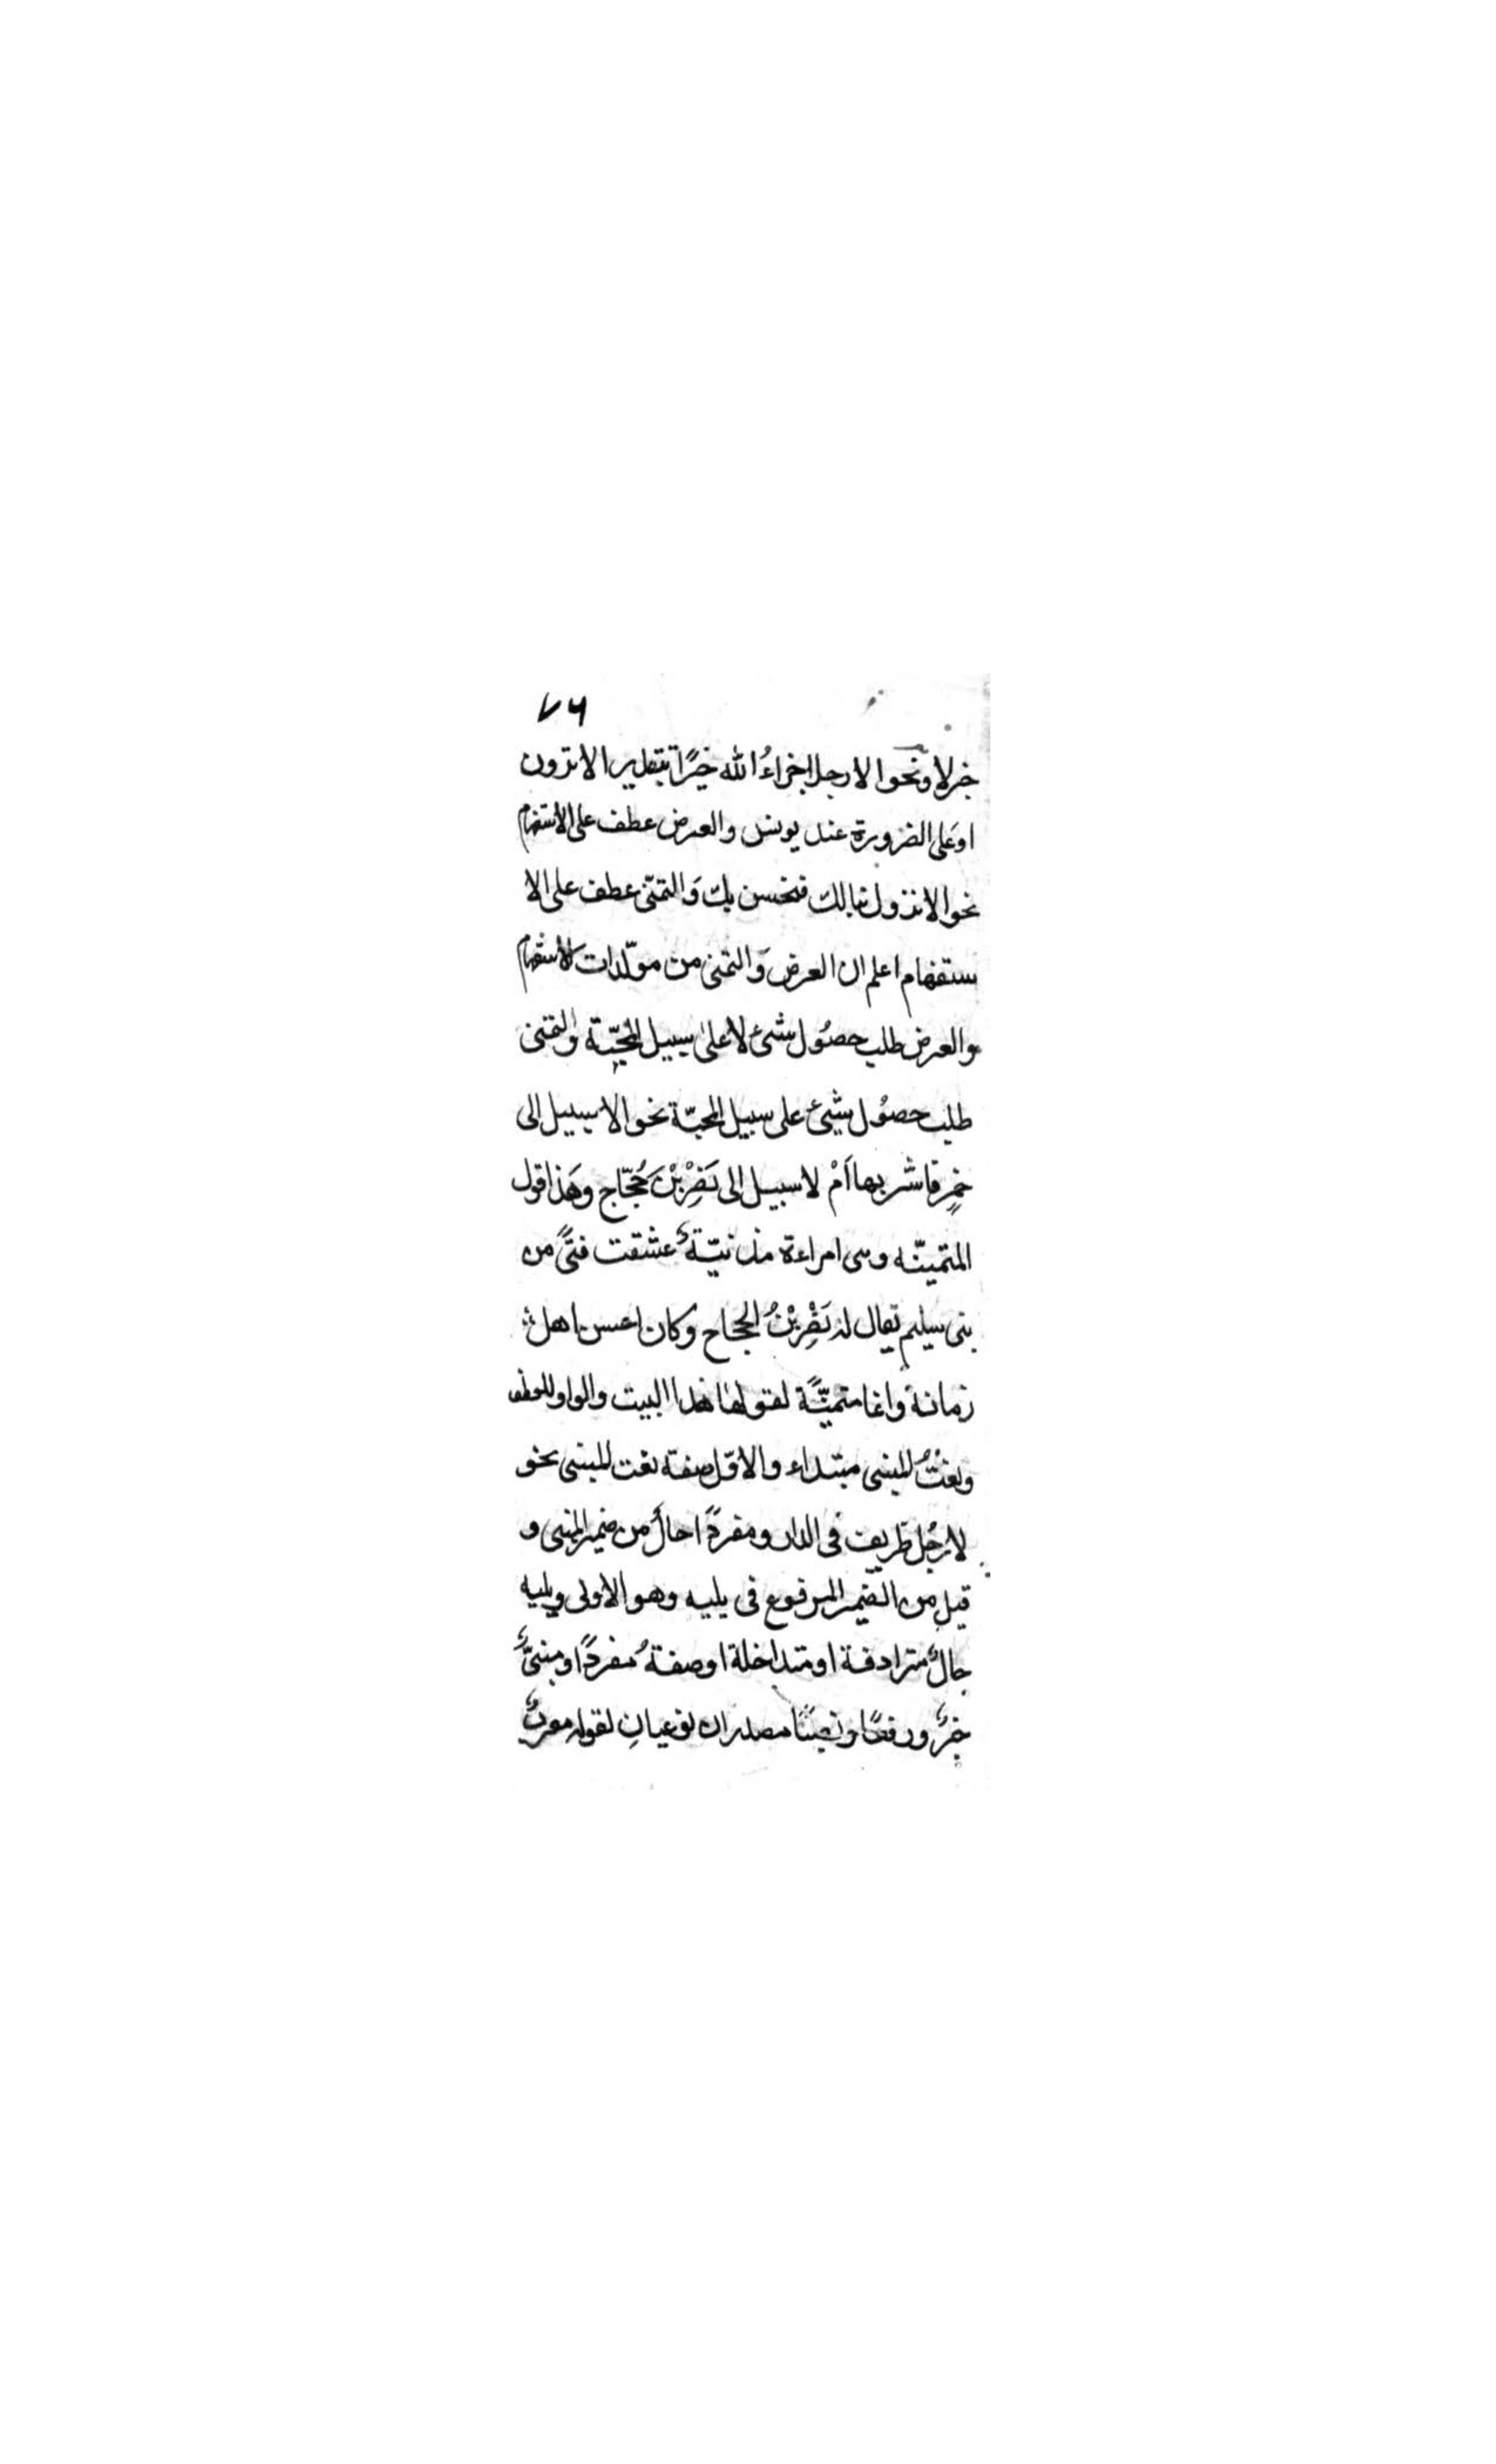 ۷۶
خبر لا ونحو الا رجل اجزاءُ الله خيرًا بتقدير الا ترون
او على الضرورة عند يونس والعرض عطف على الاستفهام
نحو الا نزول نبالك فنحسن بك وَالتمنّى عطف على الا
ستفهام اعلم ان العرض وَالتمنى من مولّدات الاستفهام
والعرض طلب حصُول شئ لا على سبيل المحبّة والتمنى
طلب حصُول شيئ على سبيل المحبّة نحو الا سبيل الى
خمرٍ فاشربها اَمْ لا سبيل الى نَصْرِ بْنِ حُجّاج وهَذا قول
المتمينّه وهى امراءة مدنيّةٌ عشقت فتىً من
بنى سليم يقال له نَصْرُ بْنُ الحجاج وكان احسن اهل
زمانه وانما متمنيّةً لقولها هذا البيت والواو للعطف
ونعتُ المبنى مبتداء والاوّل صفة نعت المبنى نحو
لا رجُل ظريف فى الدار ومفردًا حالٌ من ضمير المبنى و
قيل من الضمير المرفوع فى يليه وهو الاولى ويليه
حالٌ مترادفة او متداخلة او صفةُ مفردًا ومبنىٌّ
خبرٌ ورفعًا ونصبًا مصدران نوعيانِ لقوله معربٌ